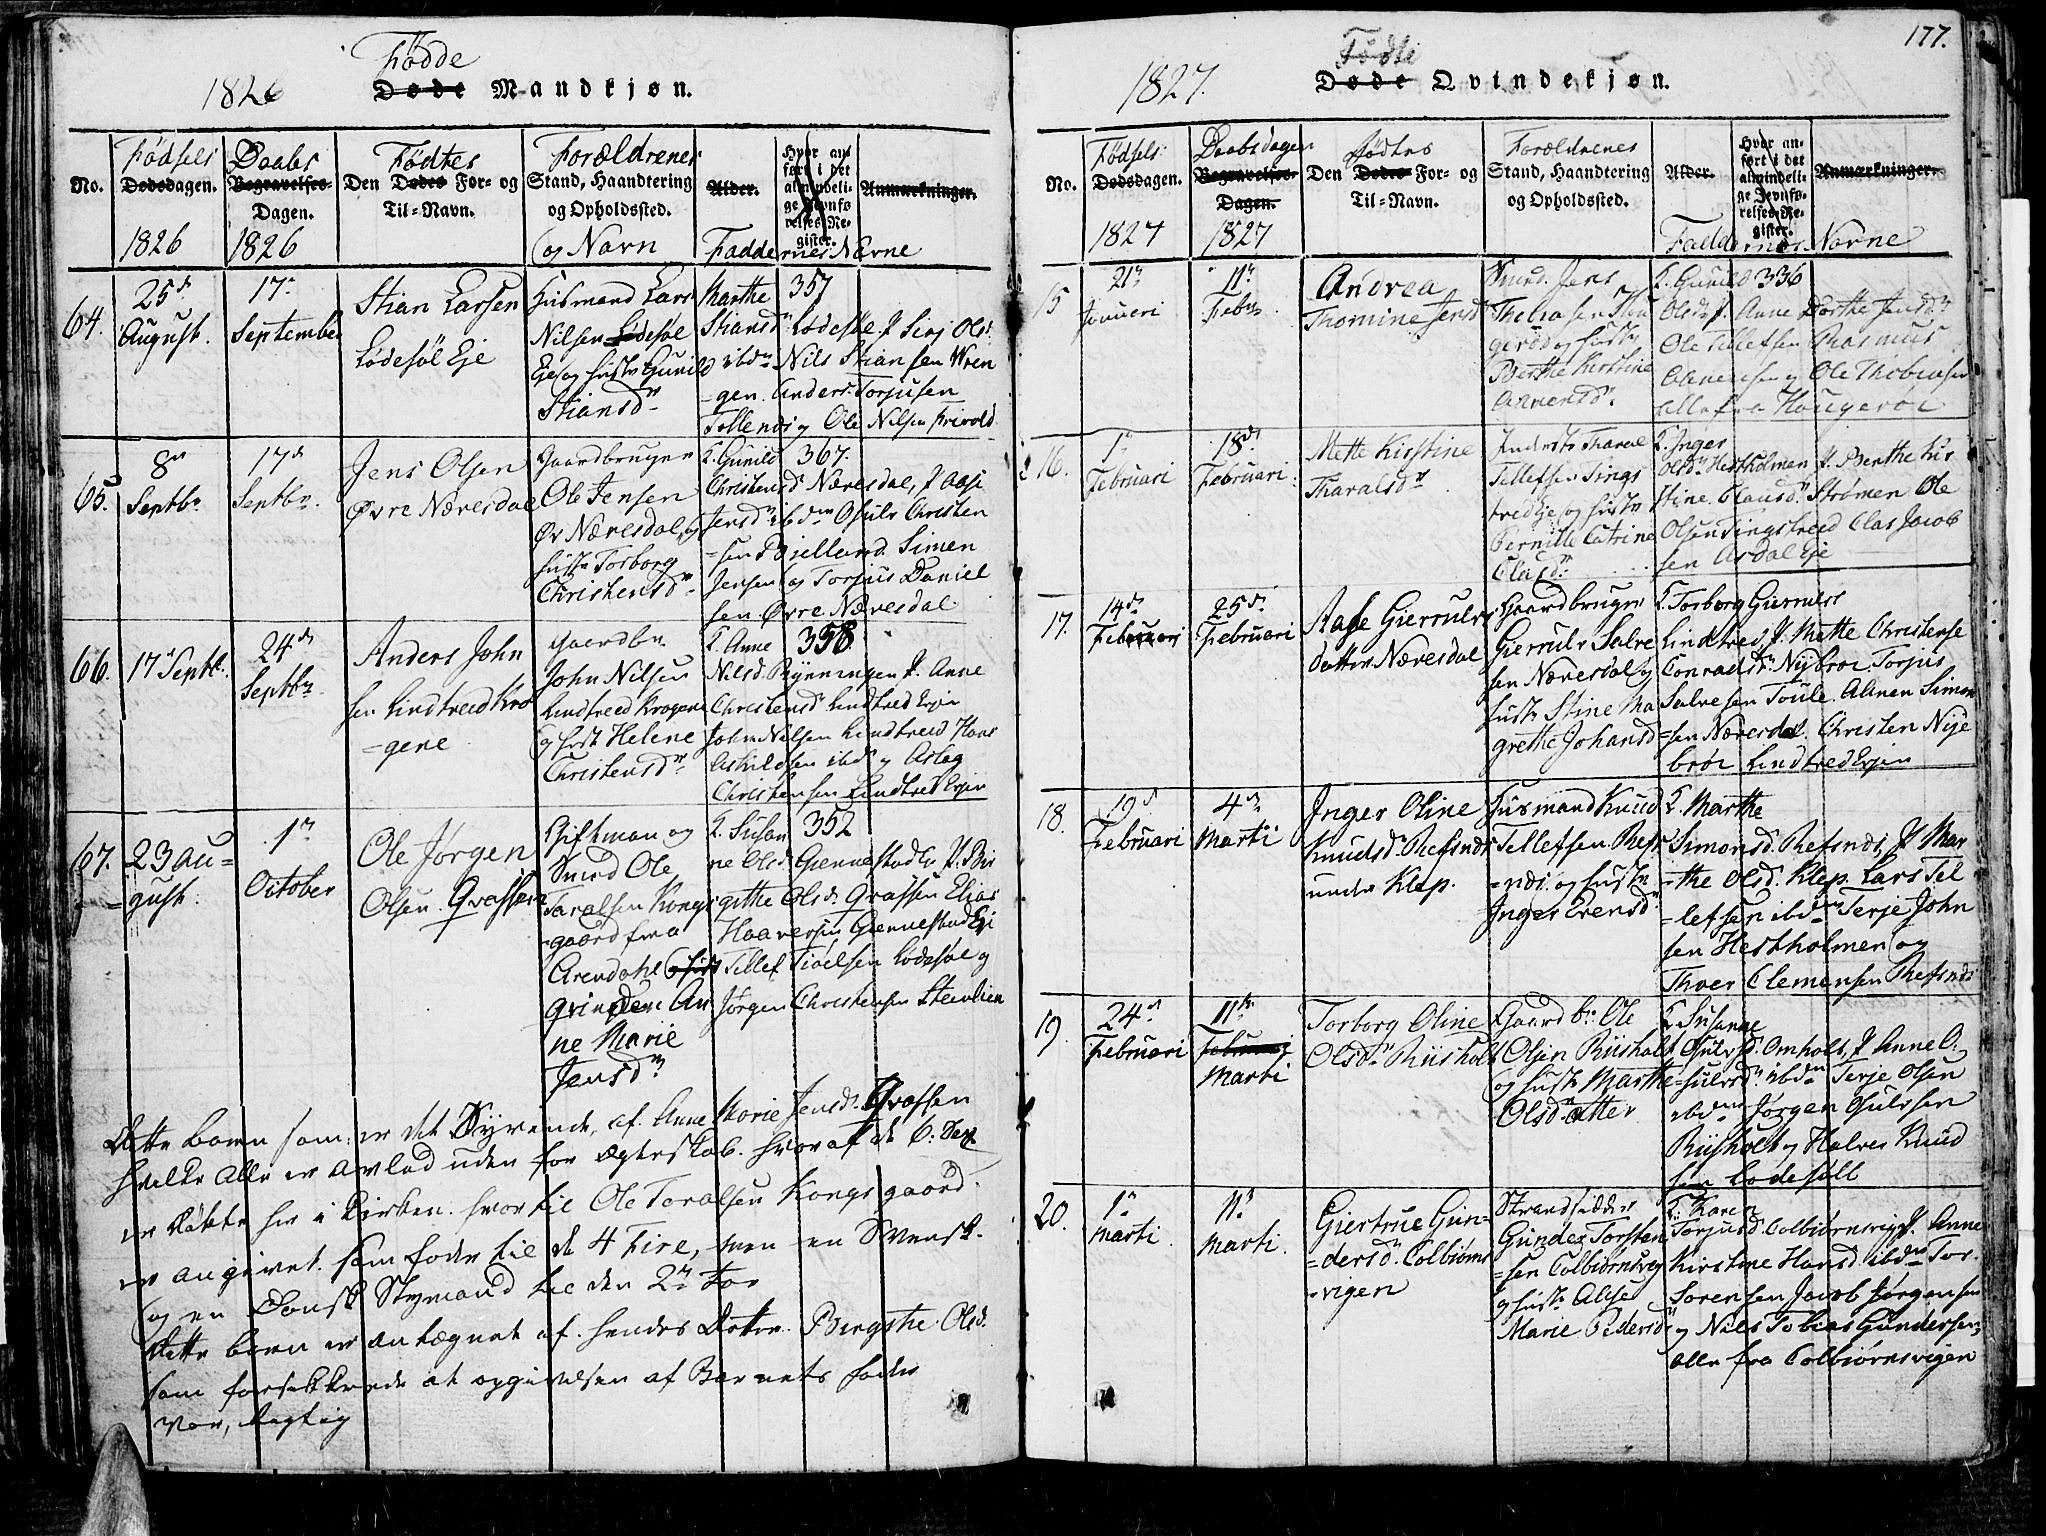 Fødde
1826 Døde Mandkjøn.
No.
Fødsels
Dødsdagen.
1826
Daabs
Begravelses-
Dagen.
1826
Den Fødtes
Dødes For- og
Til-Navn.
Forældrenes
Stand, Haandtering
og Opholdssted.
og Navn
Alder.
Hvor an-
ført i det
almindeli-
ge Jevnfø-
relses-Re-
gister.
Anmærkninger.
Faddernes Nævne
64.
25de
August.
17de
September
Stian Larsen
Lødesøl Eje
Huusmand Lars
Nilsen Lødesøl
Eje og hust: Gunild
Stiansdr
Marthe 357
Stiansdr Lødesøl J. Siri Olsd:
ibdm Nils Stiansen Vren
=gen. Anders Torjusen
og Ole Nilsen
65.
8de
Septbr
17de
Septbr.
Jens Olsen
Øvre Næresdal
Gaardbruger
Ole Jensen
Øv Næresdal, og
hustr Torborg
Christensdr
K. Gunild 367.
Christensd Næresdal, J. Aase
Jensdr ibdm Osulv Christen
=sen Bjelland. Simen
Jensen og Torjus Daniel
sen Øvre Næresdal
66.
17de Septbr.
24de
Septbr
Anders John
sen Lindtreed Kro
=gene
Gaardbr
John Nilsen
Lindtreed Krogene
og hust Helene
Christensdr
K. Anne 358.
Nilsd. Rynningen J. Anne
Christensdr Lindtred Ejer
John Nilsen Lindtreed Hans
Askildsen ibdm og Aslag
Christensen Lindtred Ejer
67.
23 Au=
=gust.
1te
October
Ole Jørgen
Olsen. Græssen
Giftman og
Smed Ole
Taralsen Kongs
=gaard fra
Arendahl
qvinden An
ne Marie
Jensdr
K. Susan 352
ne Olsd. Gjennestad J. Bir
githe Olsd. Græssen Elias
Haaversen Gjennestad Ej
Tellef Tiøelsen Lødesøl og
Jørgen Christensen
Dette barn som er det Syvende, af Anne Marie Jensdr Græssen
hvilke Alle er avlad uden for Ægteskab. hvoraf de 6: Sex
er døbte her i Kirken. hvor til Ole Taralsen Kongsgaard.
er angivet som fader til de 4 Fire, men en Svensk.
og en Dansk Skymand til den 2de For
Dette barn er antegnet af hendes Datter. Birgithe Olsd.
som forsikkrede at opgivelsen af Barnets fader
var, rigtig
177.
Fødte
1827. Døde Qvindekjøn.
No.
Fødsels
Dødsdagen.
1827
Daabsdagen
Begravelses-
Dagen.
1827
Den Fødtes
Dødes For- og
Til-Navn.
Forældrenes
Stand, Haandtering
og Opholdssted.
Alder.
Hvor an-
ført i det
almindeli-
ge Jevnfø-
relses-Re-
gister.
Anmærkninger.
Faddernes Navne
15
21de
Januari
11te
Febr
Andrea
Thomine Jensdr
Smed. Jens
Berthe Kirstine
Annensdr
K. Gunild 336
Olsdr J. Anne Dorthe Jensdr
Ole Tellefsen Rasmus
og Ole Thobiassen
alle fra Haugerøe
16.
1te
Februari
18de
Februari.
Mette Kirstine
Tharalsdr
Inderste Tharal
Tellefsen Tings
tred Eje, og hustr
Pernille Catrine
Olufsdr
K. Inger
Olsdr Hestholmen J. Berthe Kir
stine Clausdr Strømen Ole
Olsen Tingstreed Clas Jacob
sen Asdal Eje
17.
14de
Februari
25de
Februari
Aase Gierruls
datter Næresdal
Gaardbruger
Gierrulv Salve
sen Næresdal og
hustr Stine Ma
grethe Johansd
K. Torborg Gierruls
Lindtred J. Mette Christense
Conradsdr Nybroe Torjus
Salvesen Toule. Annen Simon
=sen Næresdal. Christen Nye
broe Lindtred Ejer
18.
19de
Februari
4de
Marti
Inger Oline
Knudsdr Refsnes
under Klep.
Husmand Knud
Tellefsen Refs
=nes. og hustr
Inger Evensdr
K. Marthe
Simonsd. Refsnes, J. Mar
=the Olsd. Klep. Lars Tel
=lefsen ibdm Terje John
sen Hestholmen og
Thoer Clemensen Refsnes
19.
24de
Februari
11te
Februari
Marti
Torborg Oline
Olsdr Riisholt
Gaardbr: Ole
Olsen Riisholt
og hustr Marthe
Olsdatter
K. Susanne
Osulvsd. Omholt, J. Anne O.
=sulvsdr ibdm Terje Olsen
ibdm Jørgen Osulvsen
Riisholt og Halvor Knud
sen Lødesøll
20.
1te
Marti
11te
Marti.
Giertrue Gun=
=dersdr Colbiørns
=vigen
Strandsidder
Gunder Torsten
=sen Colbiørnsvig
og hustr Alise
Marie Pedersdr
K. Karen
Torjusdr Colbiørnsvig J. Anne
Kirstine Hansd. ibdm Tor.
Sørensen Jacob Jørgensen
og Nils Tobias Gundersen,
alle fra Colbiørnsvigen